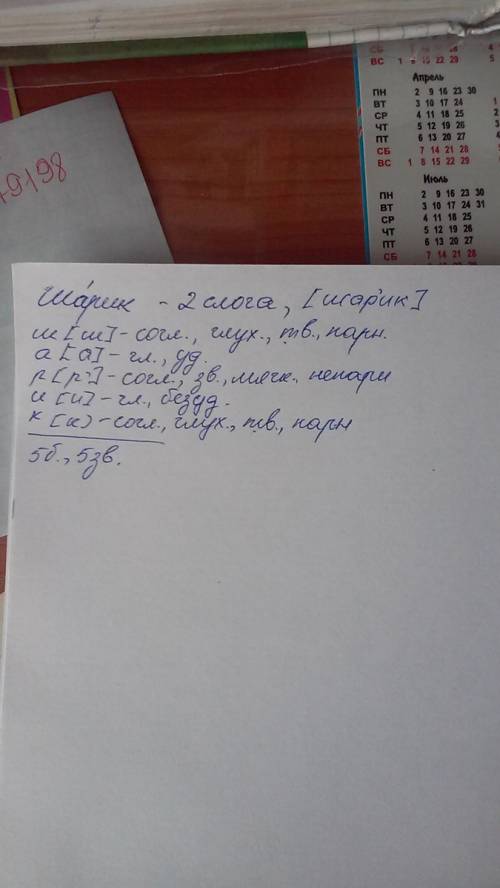 СБ 7 14 21 28 4
ВС 1 8 15 22 29 5
Апрель
ПН 2 9 16 23 30
ВТ 3 10 17 24 1
СР 4 11 18 25 2
ЧТ 5 12 19 26 3
ПТ 6 13 20 27 4
СБ 7 14 21 28 5
ВС 1 8 15 22 29
Июль
ПН 2 9 16 23 30
ВТ 3 10 17 24 31
СР 4 11 18 25
ЧТ 5 12 19 26
ПТ 6 13 20 27
СБ 7 14 21 28
79198
Ша́рик - 2 слога, [шар'ик]
ш [ш] - согл., глух., тв., парн.
а [а] - гл., уд.
р [р'] - согл., зв., мягк., непарн
и [и] - гл., безуд.
к [к] - согл., глух., тв., парн
5б., 5зв.